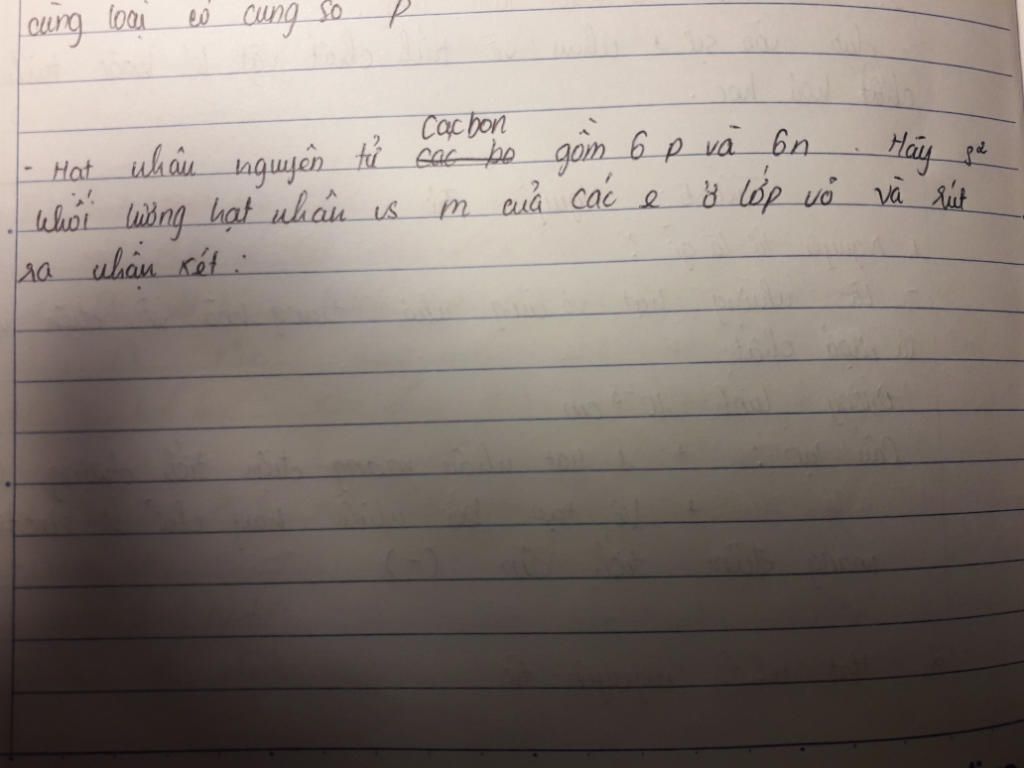 cùng loại có cùng số p
Cacbon
- Hạt nhân nguyên tử cac bo gồm 6 p và 6n . Hãy s²
khối lượng hạt nhân vs m của các e ở lớp vỏ và rút
ra nhận xét :